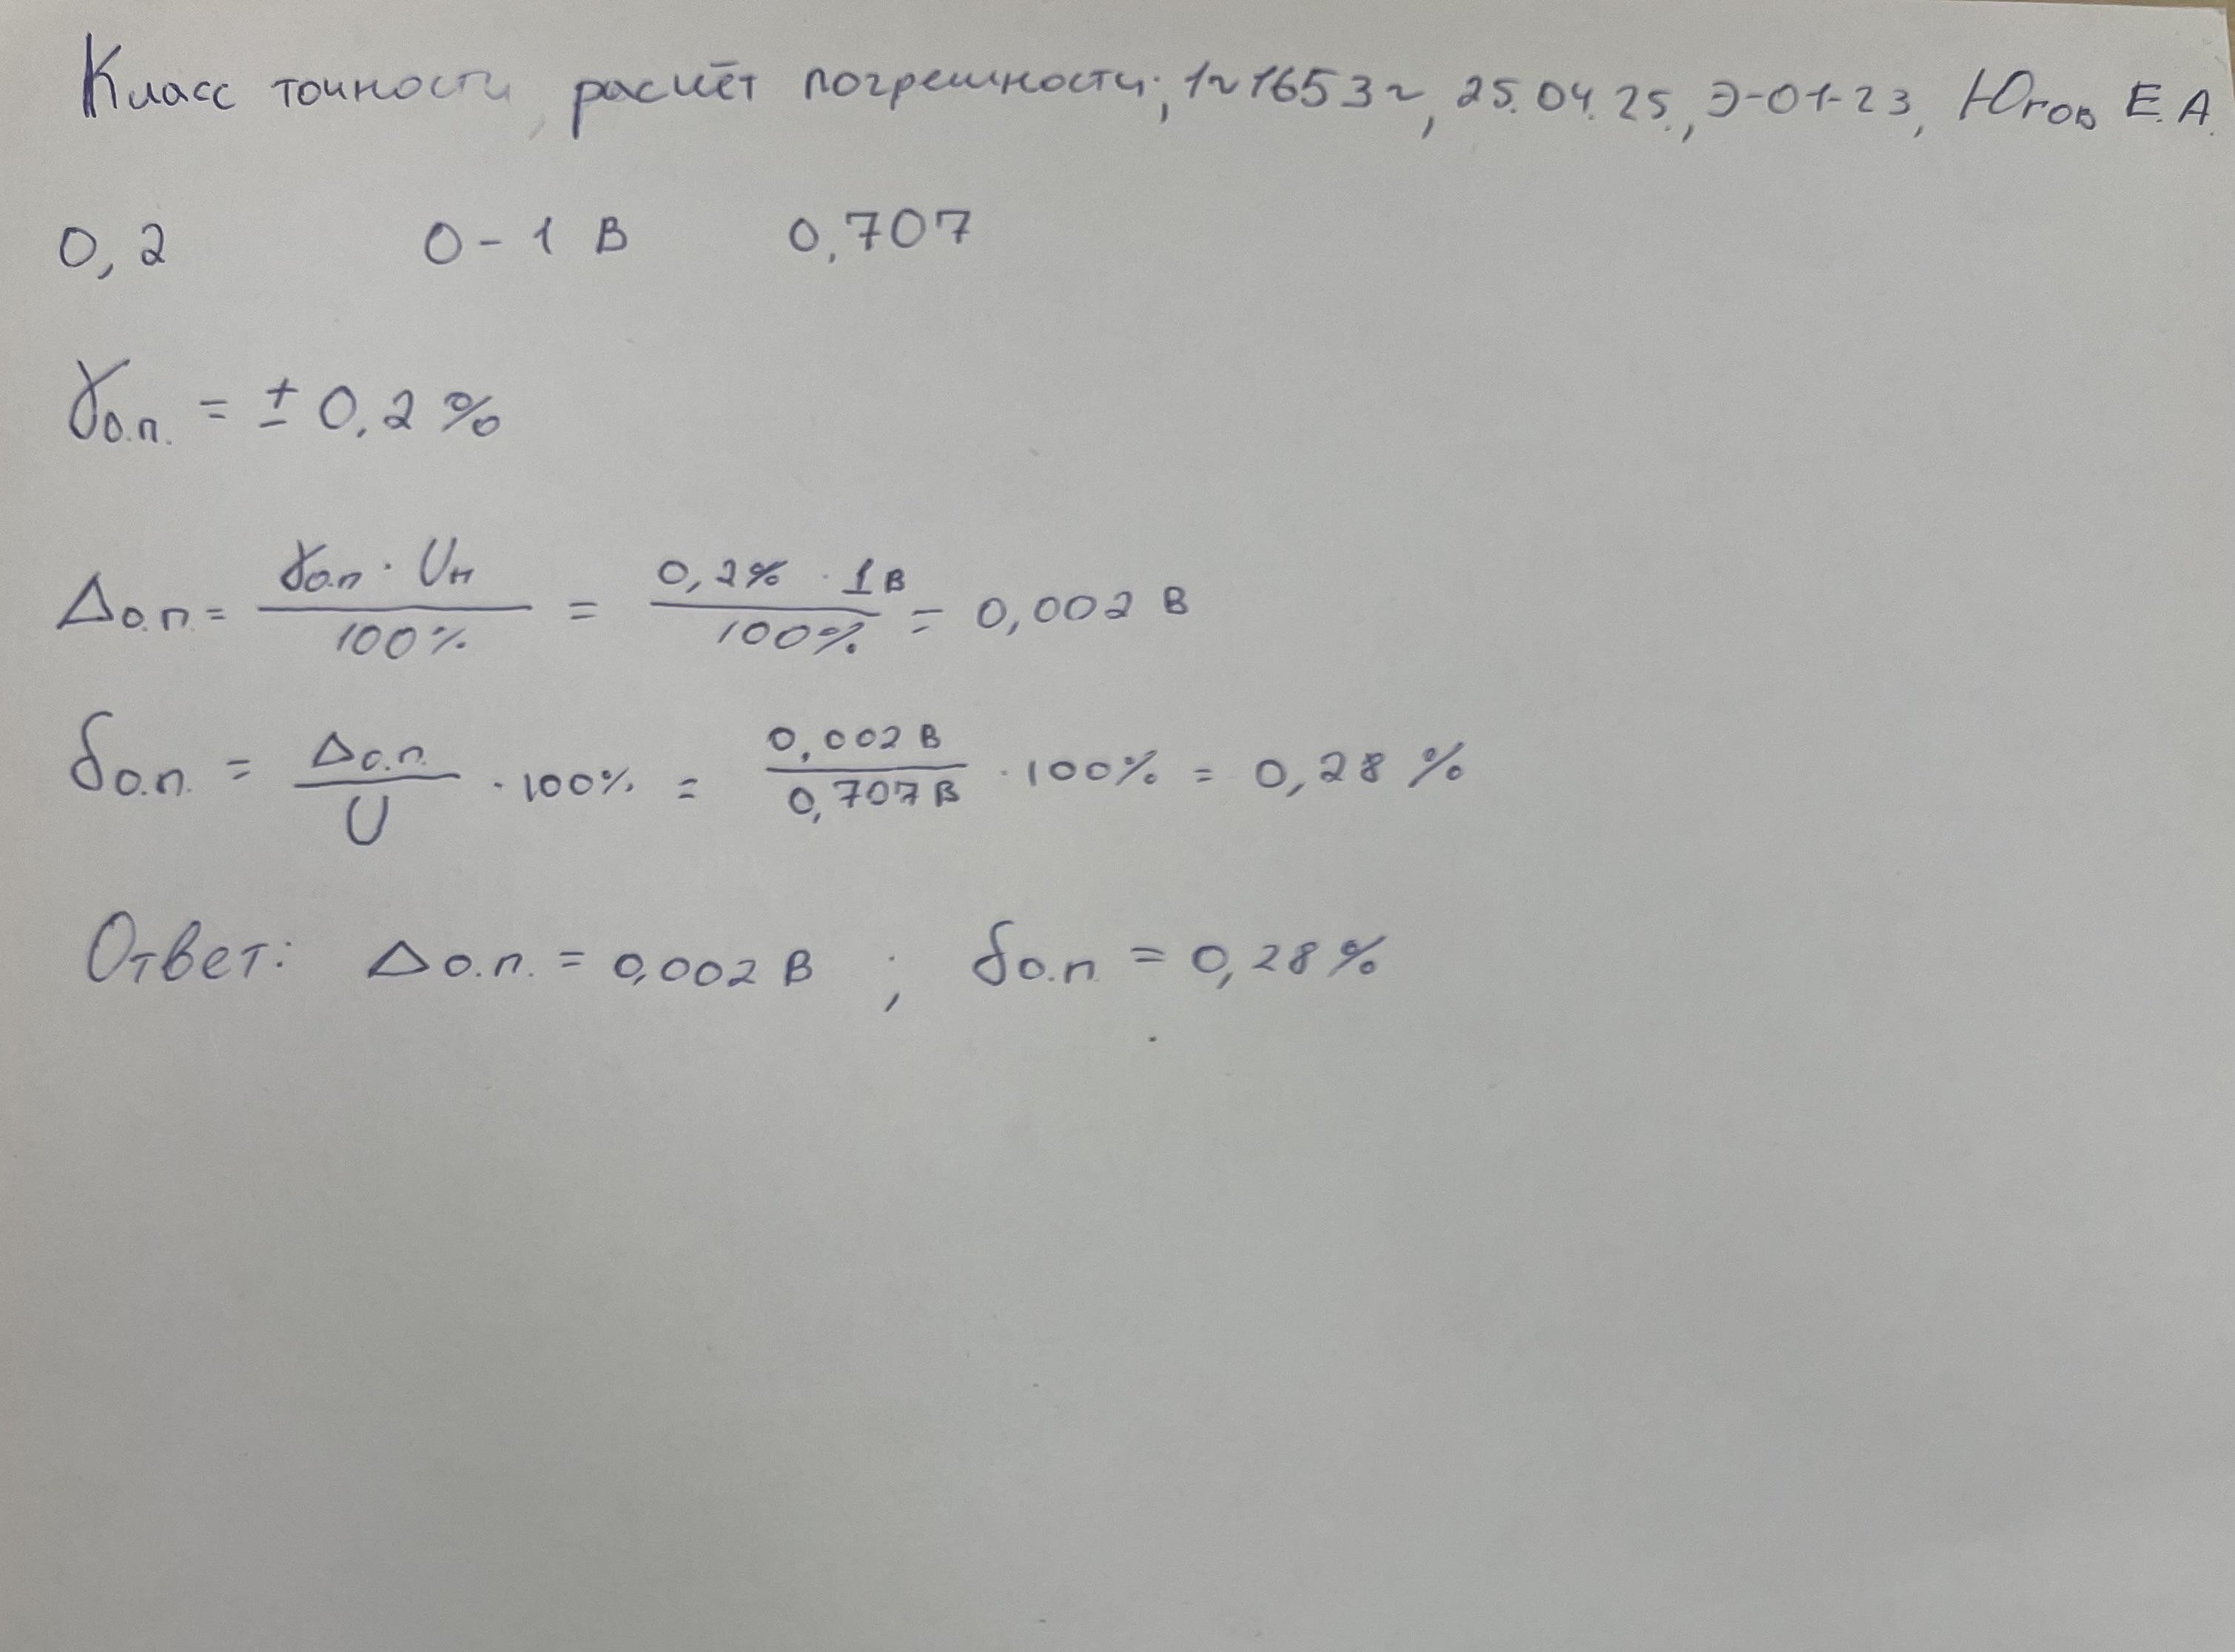 Класс точности, расчёт погрешности; 1~1653~, 25.04.25., Э-01-23, Югов Е.А.
0,2 0-1 В 0,707
γо.п. = ± 0,2 %
Δо.п. = γо.п · Uн / 100% = 0,2% · 1В / 100% = 0,002 В
δо.п. = Δо.п. / U · 100% = 0,002 В / 0,707 В · 100% = 0,28 %
Ответ: Δо.п. = 0,002 В ; δо.п. = 0,28 %